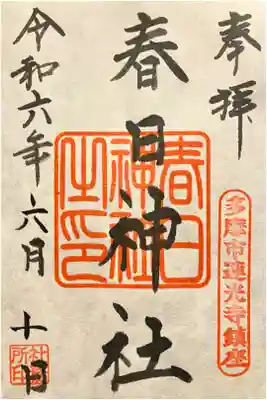 奉拝
多摩市連光寺鎮座
春日神社
春日神社之印
令和六年六月十日
社務所印